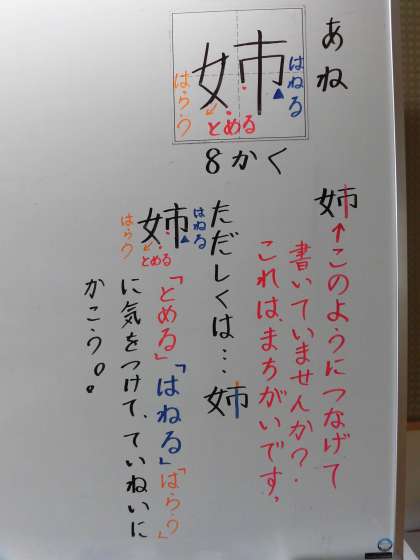 あね
姉
はねる
とめる
はらう
8かく
姉←このようにつなげて
書いていませんか?
これは、まちがいです。
ただしくは…姉
姉
はねる
とめる
はらう
「とめる」「はねる」「はらう」
に気をつけて、ていねいに
かこう。